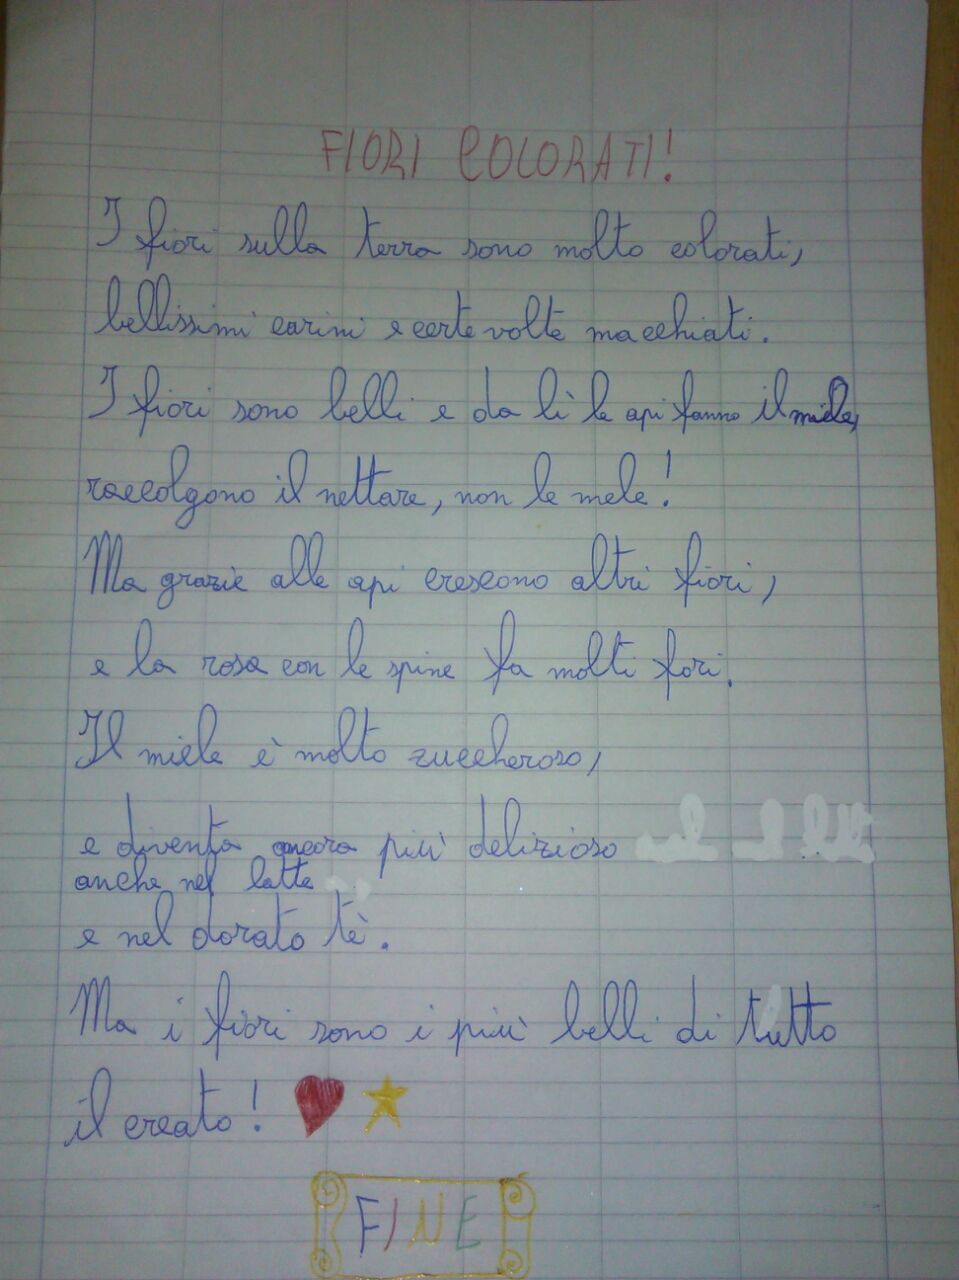 FIORI COLORATI!
I fiori sulla terra sono molto colorati,
bellissimi carini e certe volte macchiati.
I fiori sono belli e da lì le api fanno il miele,
raccolgono il nettare, non le mele!
Ma grazie alle api crescono altri fiori,
e la rosa con le spine fa molti fori.
Il miele è molto zuccheroso,
e diventa ancora più delizioso
anche nel latte
e nel dorato tè.
Ma i fiori sono i più belli di tutto
il creato!
FINE